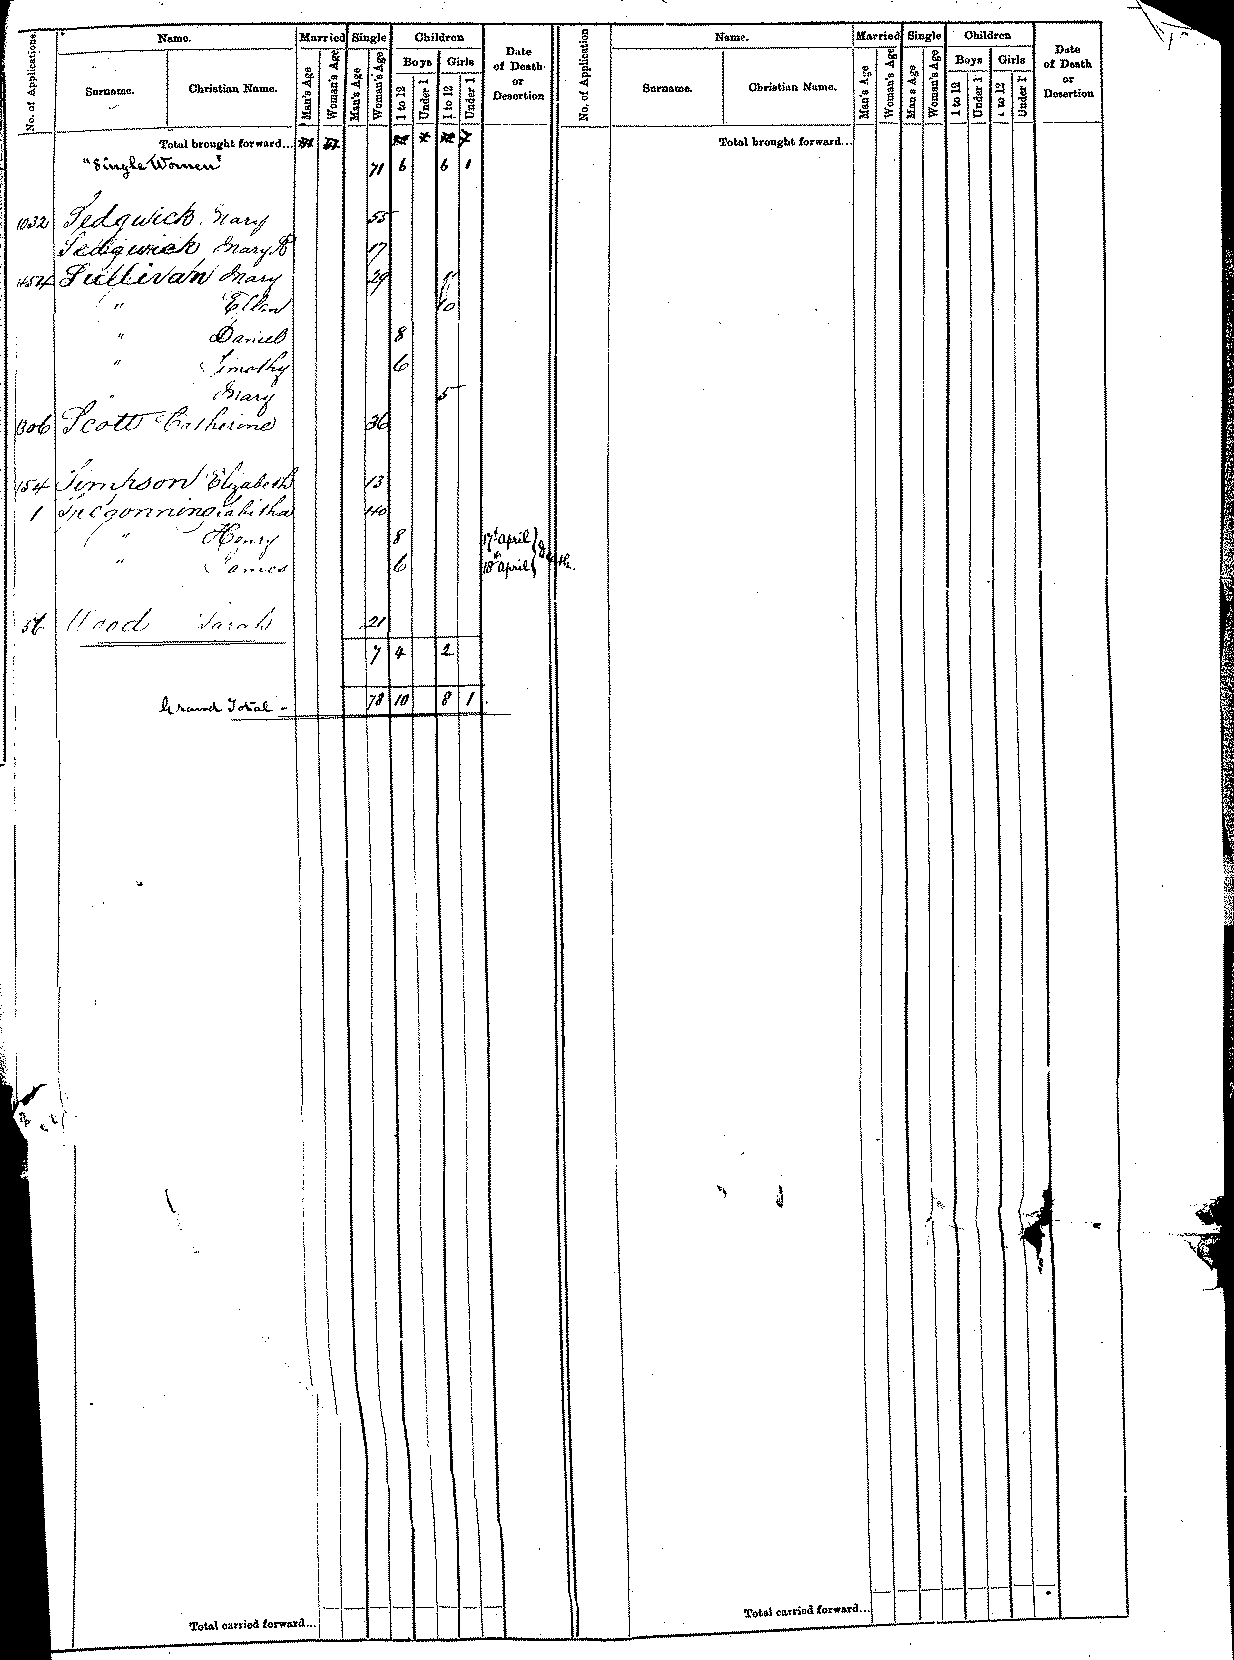 No. of Applications Name. Married Single Children Date of Death or Desertion
Surname. Christian Name. Man's Age Woman's Age Man's Age Woman's Age Boys Girls
1 to 12 Under 1 1 to 12 Under 1
Total brought forward...
"Single Women" 71 6 6 1
1032 Sedgwick Mary 55
Sedgwick Mary A 17
Sullivan Mary 29 11
" Ellen 10
" Daniel 8
" Timothy 6
" Mary 5
Scott Catherine 36
154 Simpson Elizabeth 13
1 Tregonning Tabitha 40
" Henry 8 17th April
" James 6 18th April } Death.
56 Wood Sarah 21
7 4 2
Grand Total - 78 10 8 1
Total carried forward...
No. of Application Name. Married Single Children Date of Death or Desertion
Surname. Christian Name. Man's Age Woman's Age Man's Age Woman's Age Boys Girls
1 to 12 Under 1 1 to 12 Under 1
Total brought forward...
Total carried forward...